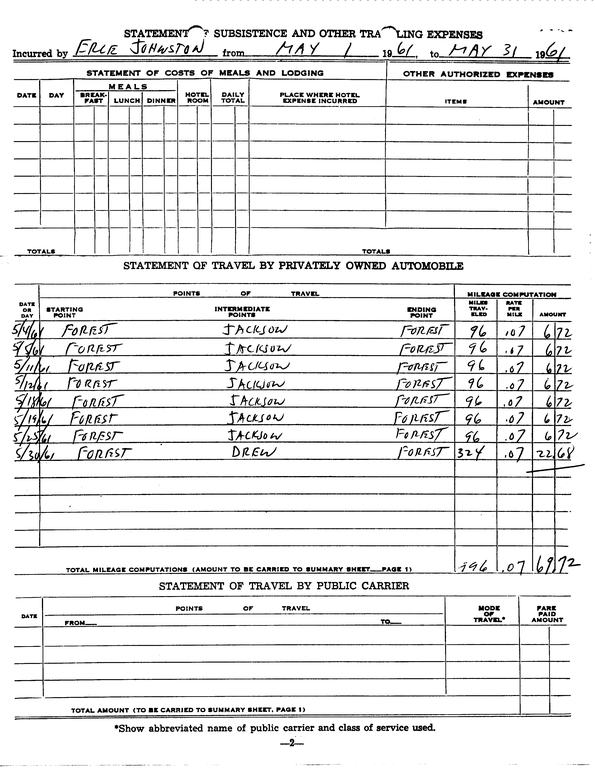 STATEMENT ? SUBSISTENCE AND OTHER TRA LING EXPENSES
Incurred by ERLE JOHNSTON from MAY 1 1961, to MAY 31 1961
STATEMENT OF COSTS OF MEALS AND LODGING OTHER AUTHORIZED EXPENSES
DATE DAY MEALS BREAK-FAST LUNCH DINNER HOTEL ROOM DAILY TOTAL PLACE WHERE HOTEL EXPENSE INCURRED ITEMS AMOUNT
TOTALS TOTALS
STATEMENT OF TRAVEL BY PRIVATELY OWNED AUTOMOBILE
POINTS OF TRAVEL MILEAGE COMPUTATION
DATE OR DAY STARTING POINT INTERMEDIATE POINTS ENDING POINT MILES TRAV-ELED RATE PER MILE AMOUNT
5/4/61 FOREST JACKSON FOREST 96 .07 6 72
5/5/61 FOREST JACKSON FOREST 96 .07 6 72
5/11/61 FOREST JACKSON FOREST 96 .07 6 72
5/12/61 FOREST JACKSON FOREST 96 .07 6 72
5/18/61 FOREST JACKSON FOREST 96 .07 6 72
5/19/61 FOREST JACKSON FOREST 96 .07 6 72
5/25/61 FOREST JACKSON FOREST 96 .07 6 72
5/30/61 FOREST DREW FOREST 324 .07 22 68
TOTAL MILEAGE COMPUTATIONS (AMOUNT TO BE CARRIED TO SUMMARY SHEET—PAGE 1) 996 .07 69 72
STATEMENT OF TRAVEL BY PUBLIC CARRIER
DATE POINTS OF TRAVEL MODE OF TRAVEL* FARE PAID AMOUNT
FROM— TO—
TOTAL AMOUNT (TO BE CARRIED TO SUMMARY SHEET, PAGE 1)
*Show abbreviated name of public carrier and class of service used.
—2—